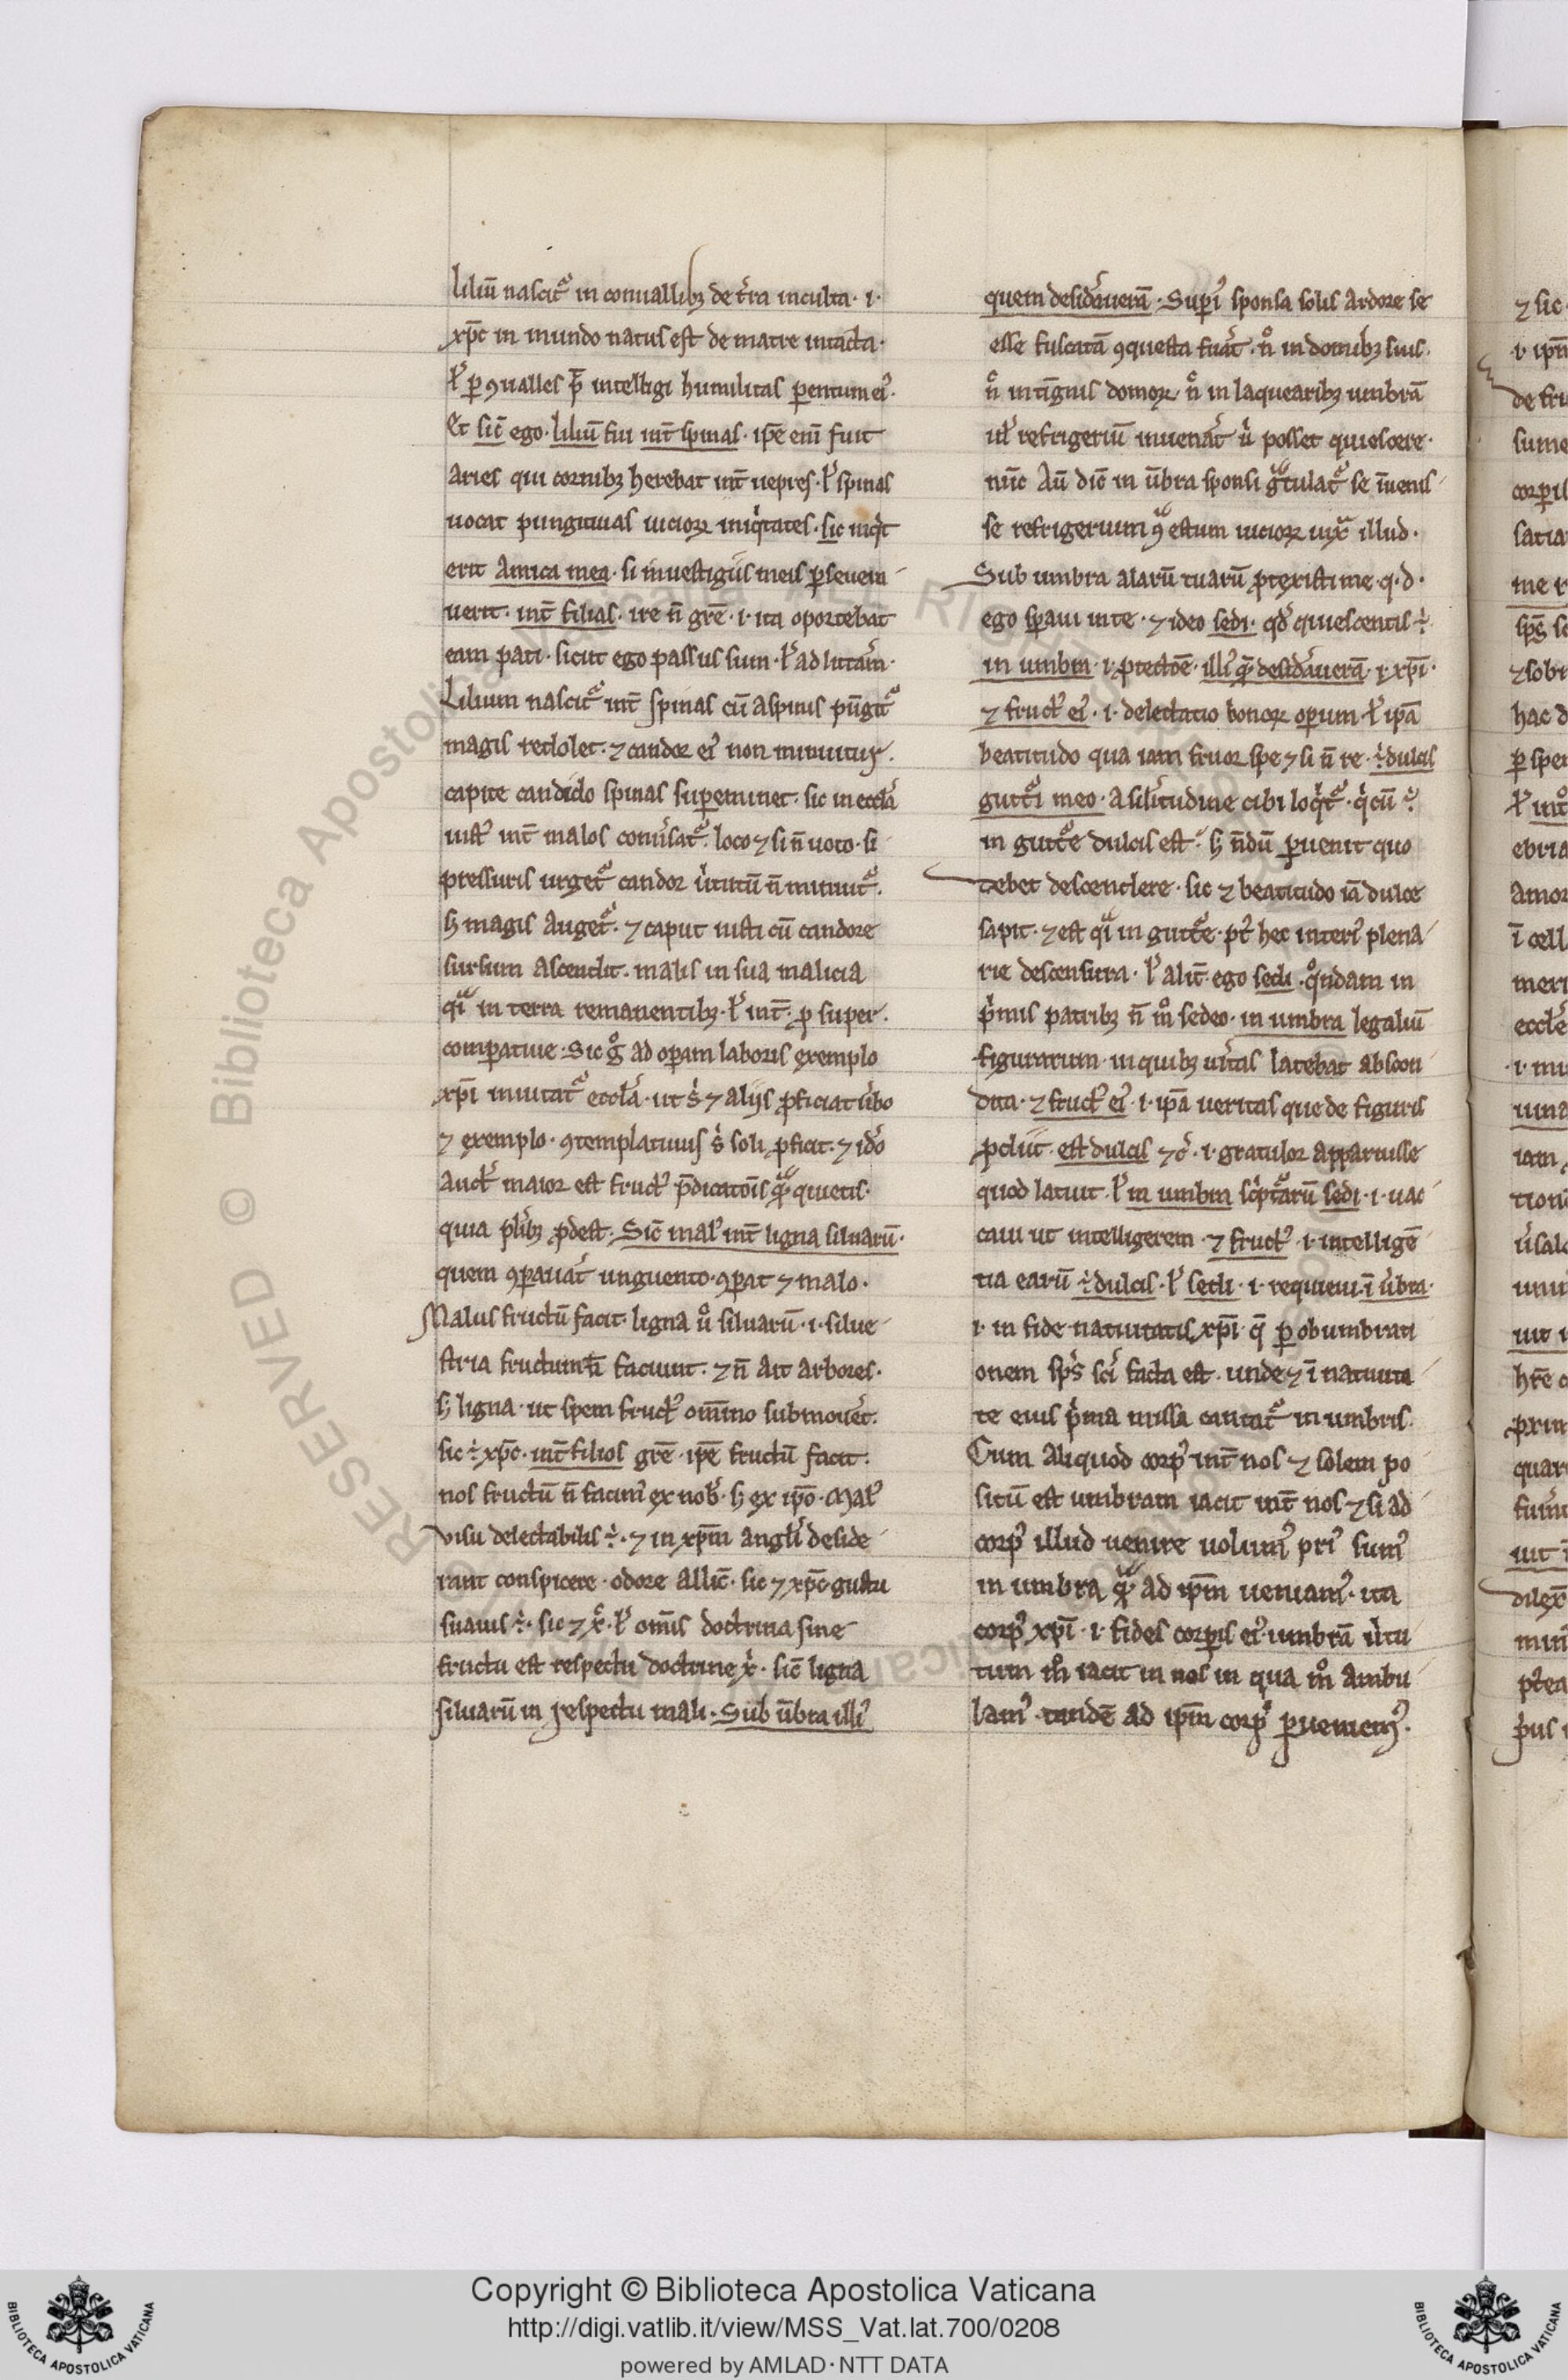 liliū nascit᷑ in conuallibꝫ de t̾ra inculta · i ·
xp̄c in mundo natus est de matre intacta ·
ł ꝑ ꝯualles p̄t intelligi humilitas parentum ei᷒ ·
Et sic̄ ego · liliū fui int̄ spinas · ip̄e eni̅ fuit
aries qui cornibꝫ herebat int̄ uepres · ł spinas
uocat pungitiuas uicioꝝ iniqͥtates · sic inqͥt
erit amica mea · si in uestigiis meis ꝑseuera
uerit · int̄ filias · ire n̄ gr̄e · i · ita oportebat
eam pati · sicut ego passus sum · ł ad litt̄am ·
Lilium nascit᷑ int̄ spinas cū a spinis pūgit᷑
magis redolet · ⁊ candor ei᷒ non minuitur ·
capite candido spinas supereminet · sic in eccl̄a
iust᷒ int̄ malos conu̾sat᷑ · loco ⁊ si n̄ uoto · si
pressuris urget᷑ candor u̾tutū n̄ minuit᷑ ·
s; magis auget᷑ · ⁊ caput iusti cū candore
sursum ascendit · malis in sua malicia
qͣi in terra remanentibꝫ · ł int̄ · ꝓ super ·
comparatiue · Sic gͦ ad operam laboris exemplo
xp̄i inuitat᷑ eccl̄a · ut sͥ ⁊ aliis ꝓficiat u̾bo
⁊ exemplo · ꝯtemplatiuus sͥ soli ꝓficit · ⁊ id̾o
maior est fruct᷒ p̄dicatōis qͣꝫ quietis ·
quia pl̾ibꝫ ꝓdest · Sic̄ mal᷒ int̄ ligna siluarū ·
quem ꝯparauat̾ unguento · ꝯparat ⁊ malo ·
Malus fructū facit · ligna uͦ siluarū · i · silue
stria fructum n̄ faciunt · ⁊ n̄ ait arbores ·
s; ligna · ut spem fruct᷒ om̄ino submoueret ·
sic ē xp̄c · int̄ filios gr̄e · ip̄e fructū facit ·
nos fructū n̄ facim᷒ ex nob̄ · s; ex ip̄o · Mal᷒
visu delectabilis ē · ⁊ in xp̄m angl̄i deside
rant conspicere · odore allic̄ · sic ⁊ xp̄c · gustu
suauis ē · sic ⁊ xͬ · ł om̄is doctrina sine
fructu est respectu doctrine xͥ · sic̄ ligna
siluarū in respectu mali · Sub ūbra illi᷒
quem desid̾aueram · Superi᷒ sponsa solis ardore se
esse fuscatā ꝯquesta fuat̾ · nͦ in domibꝫ suis ·
nͦ in tignis domoꝝ · nͦ in laquearibꝫ umbrā
ul̾ refrigeriū inuenat̾ uͥ posset quiescere ·
nūc aū dic̄ in ūbra sponsi gͣtulat᷑ se īuenis
se refrigerium ꝯͣ estum uicioꝝ iuxͣ illud ·
Sub umbra alarū tuarū ꝓtexisti me · q · d ·
ego speraui in te · ⁊ ideo sedi · qd̾ quiescentis ē
in umbra · i · ꝓtectōe · illi᷒ qͣꝫ desid̾aueram · i · xp̄i ·
⁊ fruct᷒ ei᷒ · i · delectatio bonoꝝ operum · ł ip̄a
beatitudo qua iam fruor spe ⁊ si n̄ re · ē dulcis
guttͥi meo · a sil̾itudine cibi loqͥt᷑ · qͥ cū ē
in gutt̾e dulcis est · s; n̄dū peruenit quo
debet descendere · sic ⁊ beatitudo iā dulce
sapit · ⁊ est qͣi in gutt̾e · pt̾ hec interi᷒ plena
rie descensura · ł alit̄ · ego sedi · qͦndam in
pͥmis patribꝫ n̄ mͦ sedeo · in umbra legaliū
figurarum · in quibꝫ u̾itas latebat abscon
dita · ⁊ fruct᷒ ei᷒ · i · ip̄a ueritas que de figuris
ꝓdiit · est dulcis ⁊c̾ · i · gratulor apparuisse
quod latuit · ł in umbra scͥptͣarū sedi · i · uac
caui ut intelligerem · ⁊ fruct᷒ · i · intelligē
tia earū ē dulcis · ł sedi · i · requieui · ī ūbra ·
i · in fide natiuitatis xp̄i · q̄ ꝑ obumbrati
onem sp̄s sc̄i facta est · unde ⁊ ī natiuita
te eius pͥma missa cantat᷑ in umbris ·
Cum aliquod corp᷒ int̄ nos ⁊ solem po
sitū est umbram iacit int̄ nos ⁊ si ad
corp᷒ illud uenire uolum᷒ pri᷒ sum᷒
in umbra qͣꝫ ad ip̄m ueniam᷒ · ita
corp᷒ xp̄i · i · fides corporis ei᷒ umbrā u̾tu
tum mͦ iacit in nos in qua mͦ ambu
lam᷒ · tandē ad ip̄m corp᷒ perueniem᷒ ·
⁊ sic
de fru
sume
corporis
satia
me
⁊ sobr
hac d
ꝑ spe
ebria
amor
ī cell
meri
eccl̄e
iam
quar
Copyright © Biblioteca Apostolica Vaticana
http://digi.vatlib.it/view/MSS_Vat.lat.700/0208
powered by AMLAD · NTT DATA